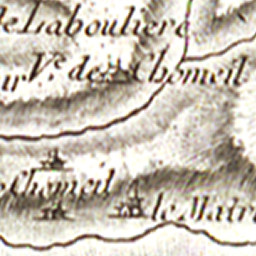 de Laboulière
V.e de Chomeil
Chomeil
le Mair